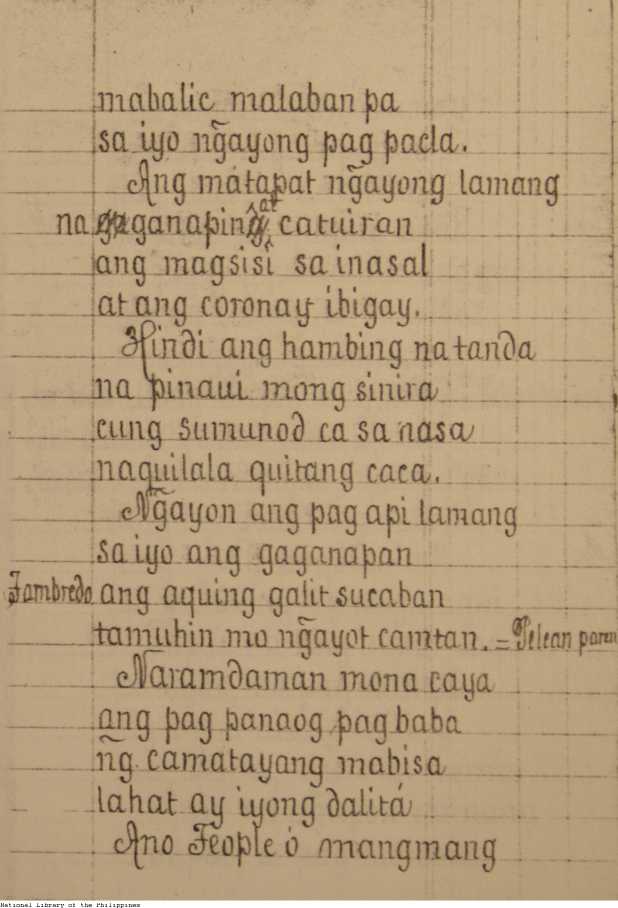 mabalic malaban pa
sa iyo ng̃ayong pag pacla.
Ang matapat ng̃ayong lamang
na gaganaping at catuiran
ang magsisi sa inasal
at ang coronay ibigay.
Hindi ang hambing na tanda
na pinaui mong sinira
cung sumunod ca sa nasa
naquilala quitang caca.
Ng̃ayon ang pag api lamang
sa iyo ang gaganapan
Jambredo ang aquing galit sucaban
tamuhin mo ng̃ayot camtan. = Pelean paren
Naramdaman mona caya
ang pag panaog pag baba
ng̃ camatayang mabisa
lahat ay iyong dalitá
Ano Feople ó mangmang
National Library of the Philippines